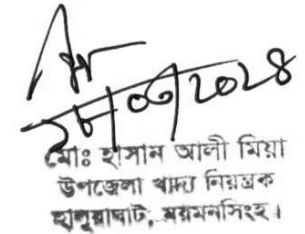 মোঃ হাসান আলী মিয়া
উপজেলা খাদ্য নিয়ন্ত্রক
হালুয়াঘাট, ময়মনসিংহ।